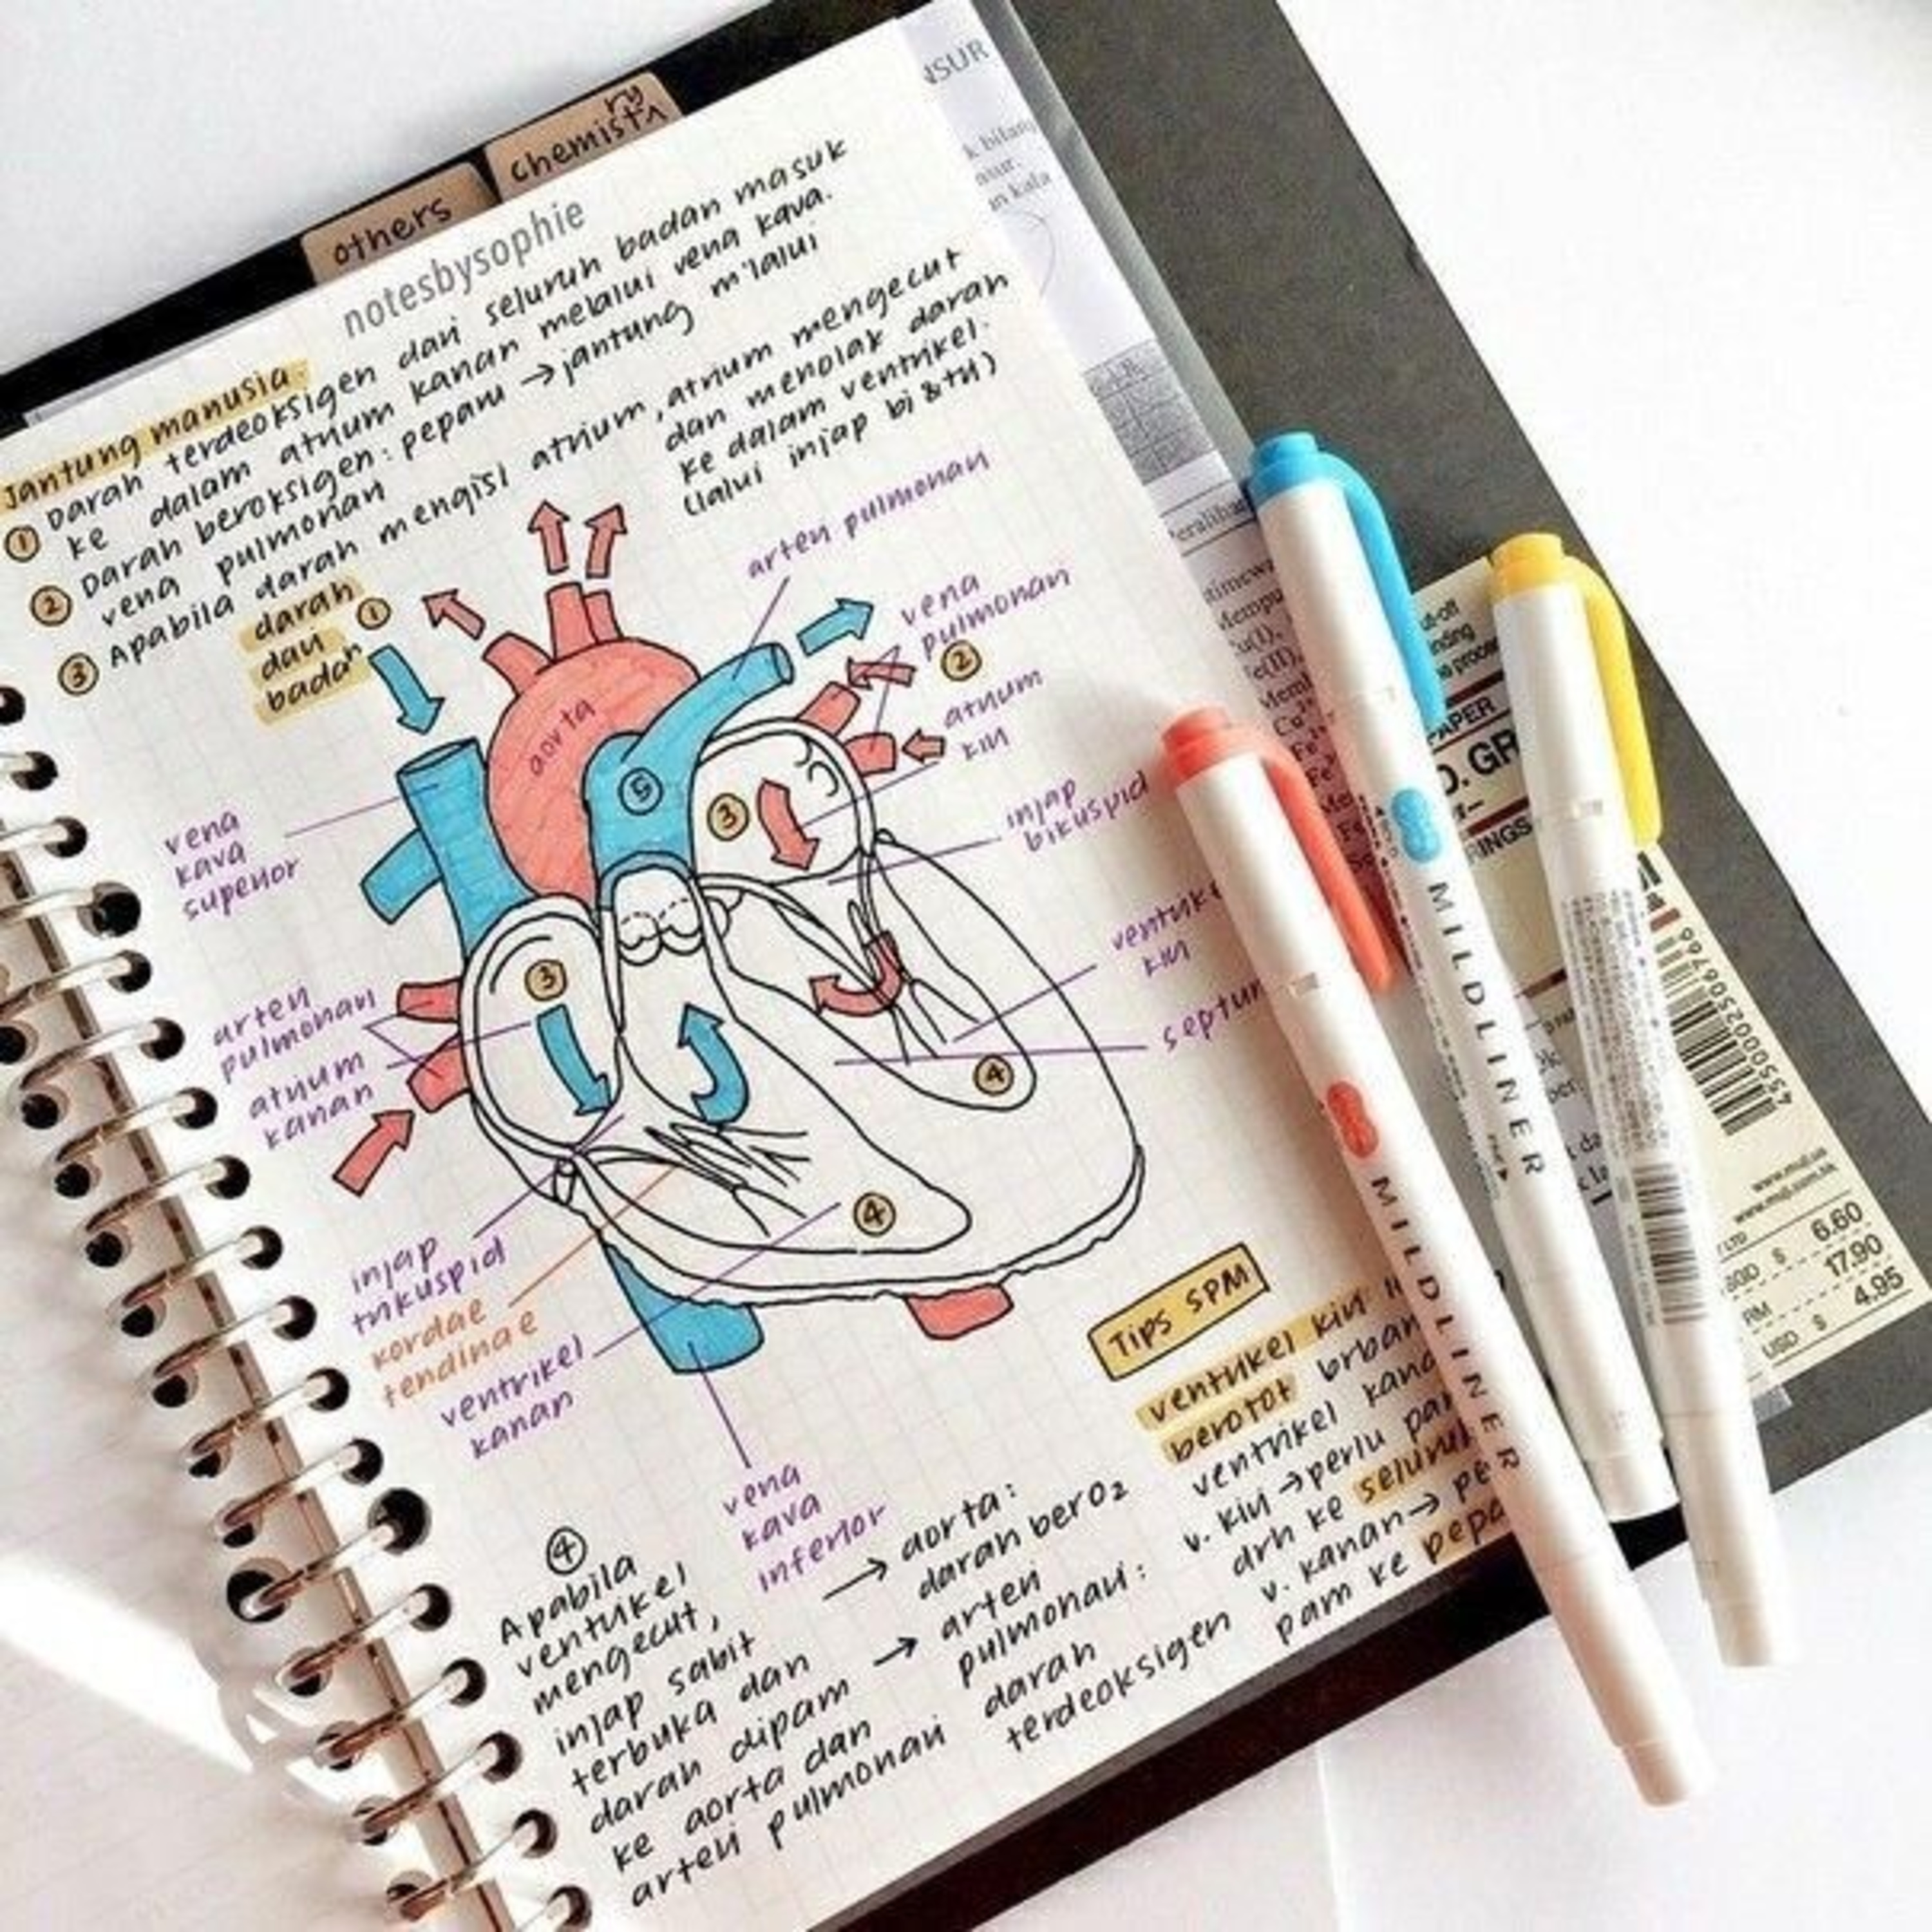 others
chemistry
notesbysophie
Jantung manusia.
① Darah terdeoksigen dari seluruh badan masuk
ke dalam atrium kanan melalui vena kava.
② Darah beroksigen: peparu → jantung m'lalui
vena pulmonari
③ Apabila darah mengisi atrium, atrium mengecut
dan menolak darah
ke dalam ventrikel.
(lalui injap bi & tri)
darah
dari
badan
①
arteri pulmonari
vena
pulmonari
②
atrium
kiri
injap
bikuspid
septum
aorta
⑤
③
③
④
④
vena
kava
superior
arteri
pulmonari
atrium
kanan
injap
trikuspid
kordae
tendinae
ventrikel
kanan
vena
kava
inferior
ventrikel
kiri
Tips SPM
ventrikel kiri
berotot
ventrikel
v. kiri → perlu
drh ke
v. kanan →
pam ke
④
Apabila
ventrikel
mengecut,
injap sabit
terbuka dan
darah dipam
ke aorta dan
arteri pulmonari
→ aorta:
darah berO₂
→ arteri
pulmonari:
darah
terdeoksigen
MILDLINER
MILDLINER
PAPER
4550002506766
www.muji.us
www.muji.com.hk
SGD $ 6.60
RM 17.90
USD $ 4.95